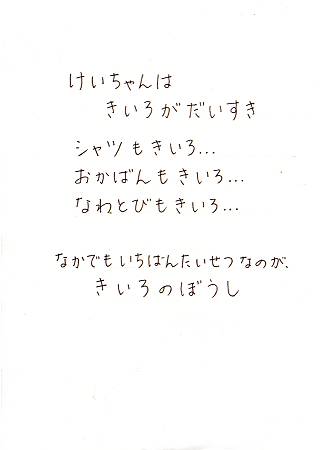 けいちゃんは
きいろがだいすき
シャツもきいろ...
おかばんもきいろ...
なわとびもきいろ...
なかでもいちばんたいせつなのが、
きいろのぼうし